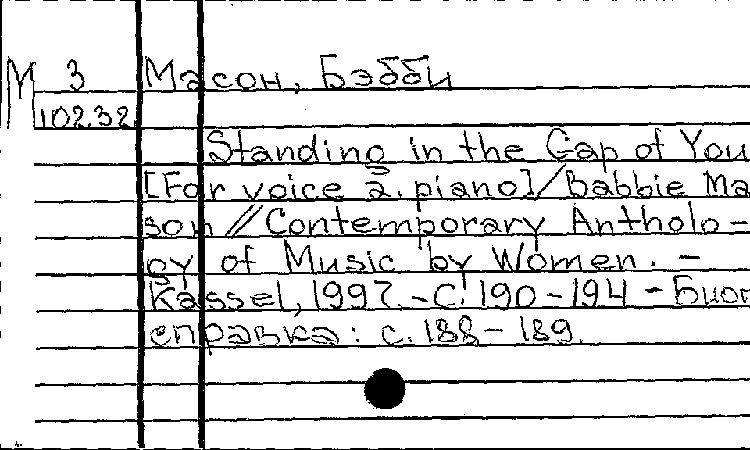 М 3 Масон, Бэбби
10232
Standing in the Gap of You
[For voice a. piano]/Babbie Ma
son // Contemporary Antholo-
gy of Music by Women. -
Kassel, 1997. - С. 190-194 - Биог
справка: с. 188-189.